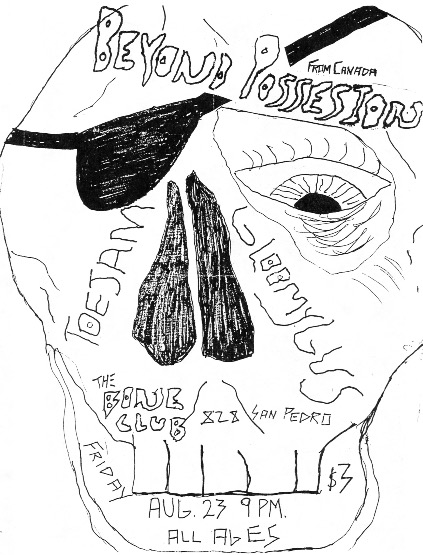 BEYOND POSSESION
FROM CANADA
TOEJAM
GLOOMYGUS
THE
BONE
CLUB
828 SAN PEDRO
FRIDAY
$3
AUG. 23 9 PM.
ALL AGES